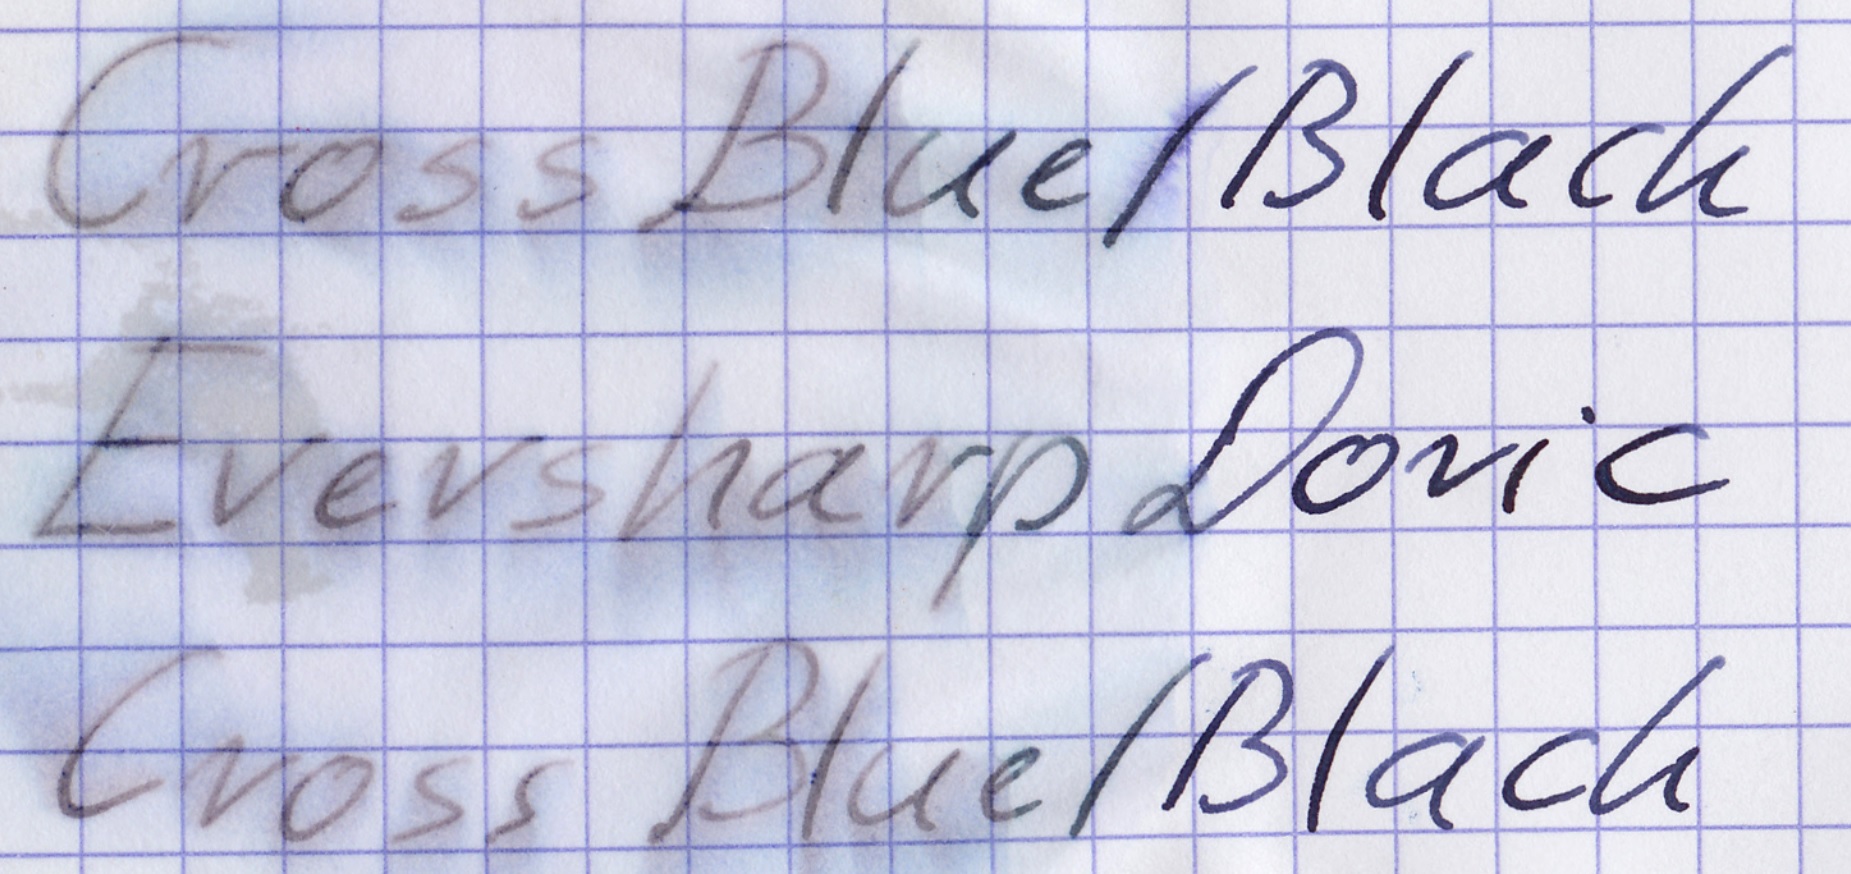 Cross Blue/Black
Eversharp Doric
Cross Blue/Black